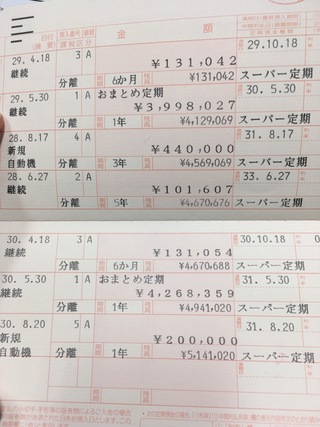 日付 預入番号 記号 金 額
(摘要) 課税区分
29. 4.18 3 A ¥131,042 29.10.18
継続 分離 6か月 残高 ¥131,042 スーパー定期
29. 5.30 1 A おまとめ定期 ¥3,998,027 30. 5.30
継続 分離 期間 1年 残高 ¥4,129,069 スーパー定期
28. 8.17 4 A ¥440,000 31. 8.17
新規
自動機 分離 期間 3年 残高 ¥4,569,069 スーパー定期
28. 6.27 2 A ¥101,607 33. 6.27
継続 分離 期間 5年 残高 ¥4,670,676 スーパー定期
30. 4.18 3 A ¥131,054 30.10.18
継続 分離 期間 6か月 残高 ¥4,670,688 スーパー定期
30. 5.30 1 A おまとめ定期 31. 5.30
継続 ¥4,268,359
分離 期間 1年 残高 ¥4,941,020 スーパー定期
30. 8.20 5 A ¥200,000 31. 8.20
新規
自動機 分離 期間 1年 残高 ¥5,141,020 スーパー定期